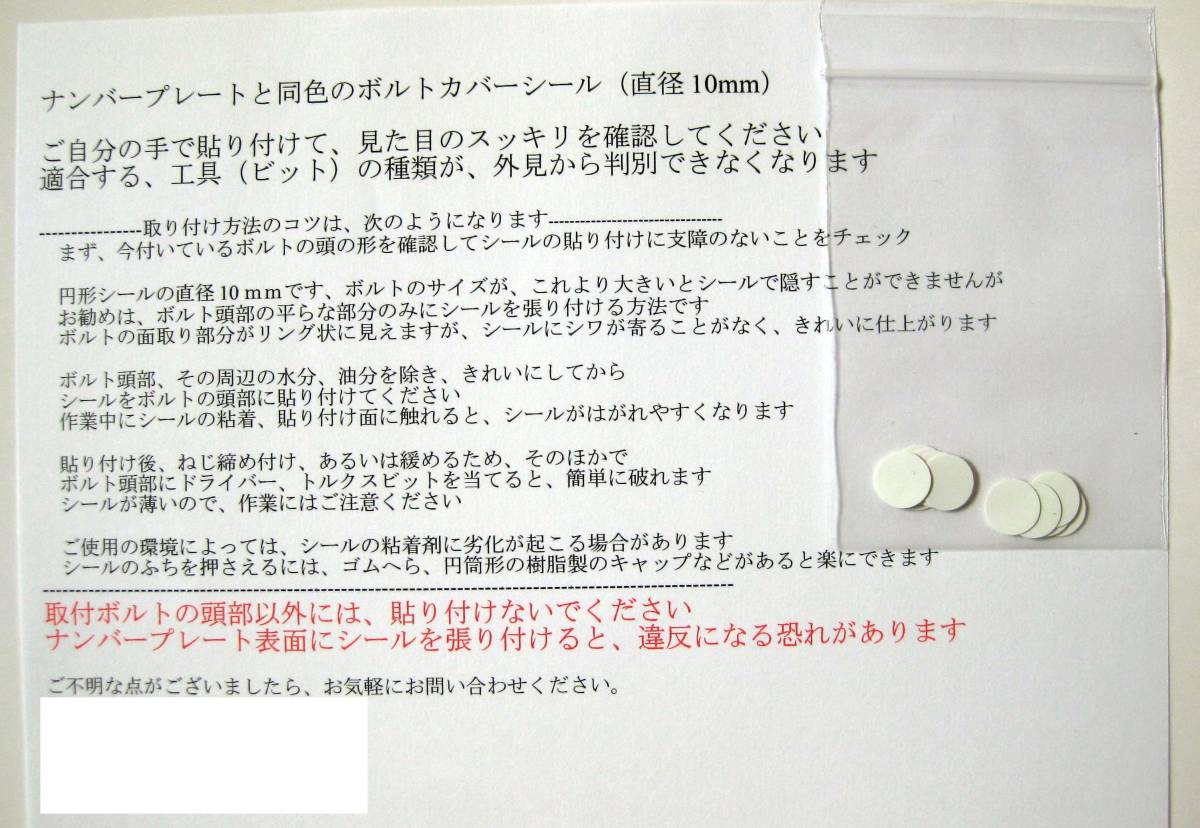 ナンバープレートと同色のボルトカバーシール（直径10mm）
ご自分の手で貼り付けて、見た目のスッキリを確認してください
適合する、工具（ビット）の種類が、外見から判別できなくなります
-----------------取り付け方法のコツは、次のようになります---------------------------------
まず、今付いているボルトの頭の形を確認してシールの貼り付けに支障のないことをチェック
円形シールの直径10ｍｍです、ボルトのサイズが、これより大きいとシールで隠すことができませんが
お勧めは、ボルト頭部の平らな部分のみにシールを張り付ける方法です
ボルトの面取り部分がリング状に見えますが、シールにシワが寄ることがなく、きれいに仕上がります
ボルト頭部、その周辺の水分、油分を除き、きれいにしてから
シールをボルトの頭部に貼り付けてください
作業中にシールの粘着、貼り付け面に触れると、シールがはがれやすくなります
貼り付け後、ねじ締め付け、あるいは緩めるため、そのほかで
ボルト頭部にドライバー、トルクスビットを当てると、簡単に破れます
シールが薄いので、作業にはご注意ください
ご使用の環境によっては、シールの粘着剤に劣化が起こる場合があります
シールのふちを押さえるには、ゴムへら、円筒形の樹脂製のキャップなどがあると楽にできます
取付ボルトの頭部以外には、貼り付けないでください
ナンバープレート表面にシールを張り付けると、違反になる恐れがあります
ご不明な点がございましたら、お気軽にお問い合わせください。